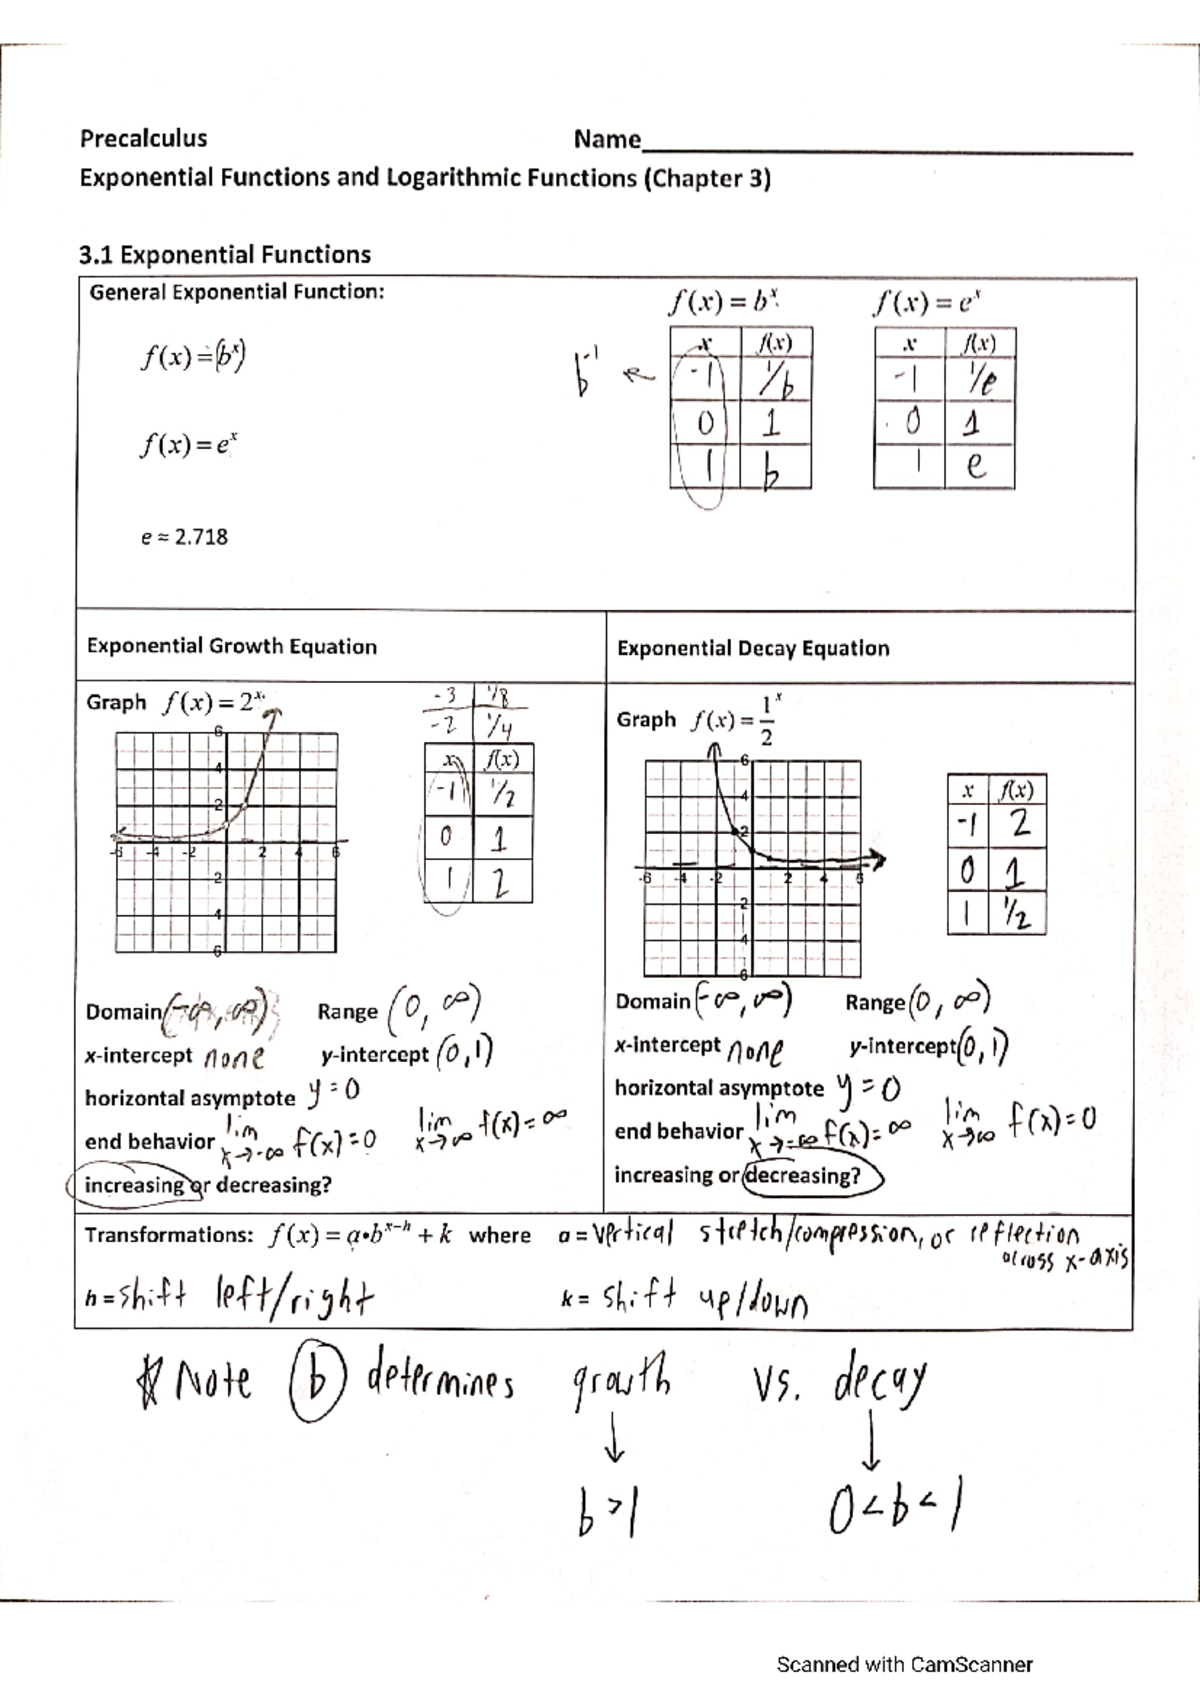 Precalculus Name
Exponential Functions and Logarithmic Functions (Chapter 3)
3.1 Exponential Functions
General Exponential Function:
f(x) = (bˣ)
f(x) = eˣ
e ≈ 2.718
b⁻¹ ←
f(x) = bˣ
x f(x)
-1 1/b
0 1
1 b
f(x) = eˣ
x f(x)
-1 1/e
0 1
1 e
Exponential Growth Equation
Graph f(x) = 2ˣ
6
4
2
-6 -4 -2 2 4 6
2
4
6
-3 1/8
-2 1/4
x f(x)
-1 1/2
0 1
1 2
Domain (-∞, ∞) Range (0, ∞)
x-intercept none y-intercept (0,1)
horizontal asymptote y=0
end behavior lim x→-∞ f(x)=0 lim x→∞ f(x)=∞
increasing or decreasing?
Exponential Decay Equation
Graph f(x) = 1/2ˣ
6
4
2
-6 -4 -2 2 4 6
2
4
6
x f(x)
-1 2
0 1
1 1/2
Domain (-∞, ∞) Range (0, ∞)
x-intercept none y-intercept (0,1)
horizontal asymptote y=0
end behavior lim x→-∞ f(x)=∞ lim x→∞ f(x)=0
increasing or decreasing?
Transformations: f(x) = a•bˣ⁻ʰ + k where a = vertical stretch/compression, or reflection
across x-axis
h = shift left/right k = shift up/down
* Note b determines growth vs. decay
↓ ↓
b>1 0<b<1
Scanned with CamScanner